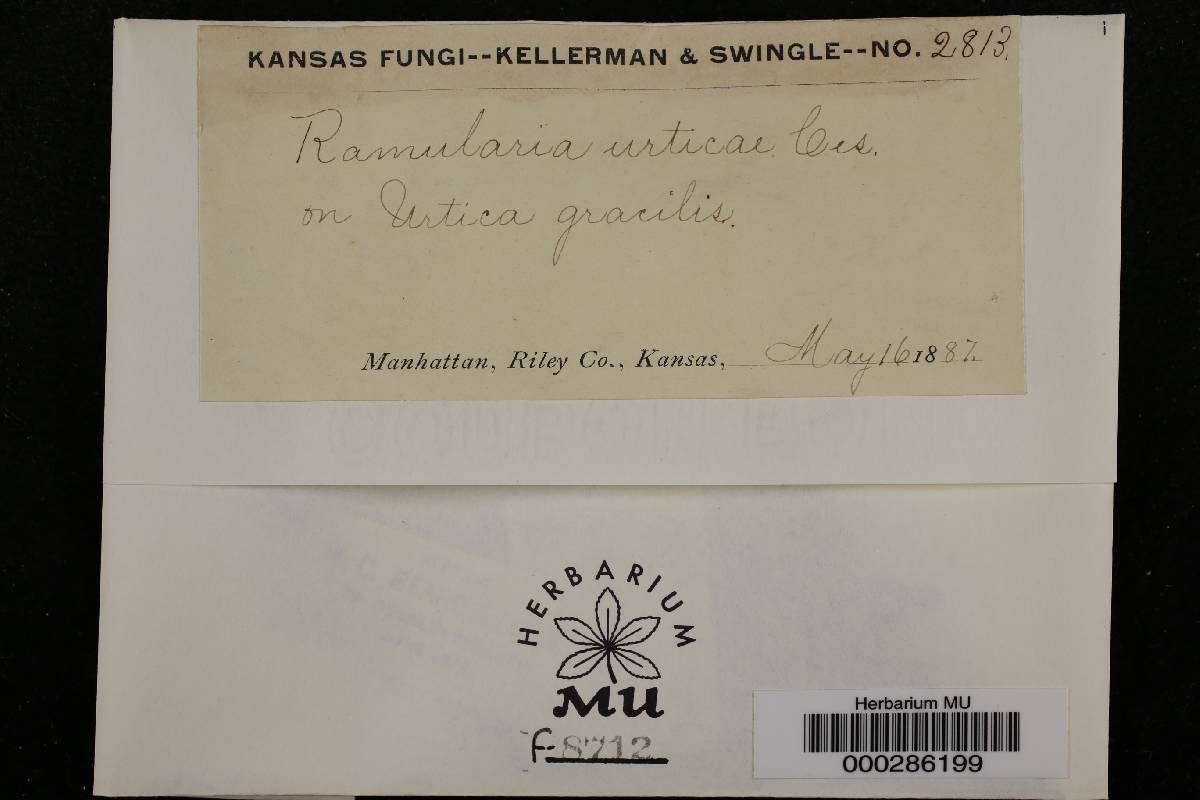 KANSAS FUNGI--KELLERMAN & SWINGLE--NO. 2813.
Ramularia urticae Ces.
on Urtica gracilis.
Manhattan, Riley Co., Kansas, May 16 1887
HERBARIUM
MU
F-8712
Herbarium MU
000286199